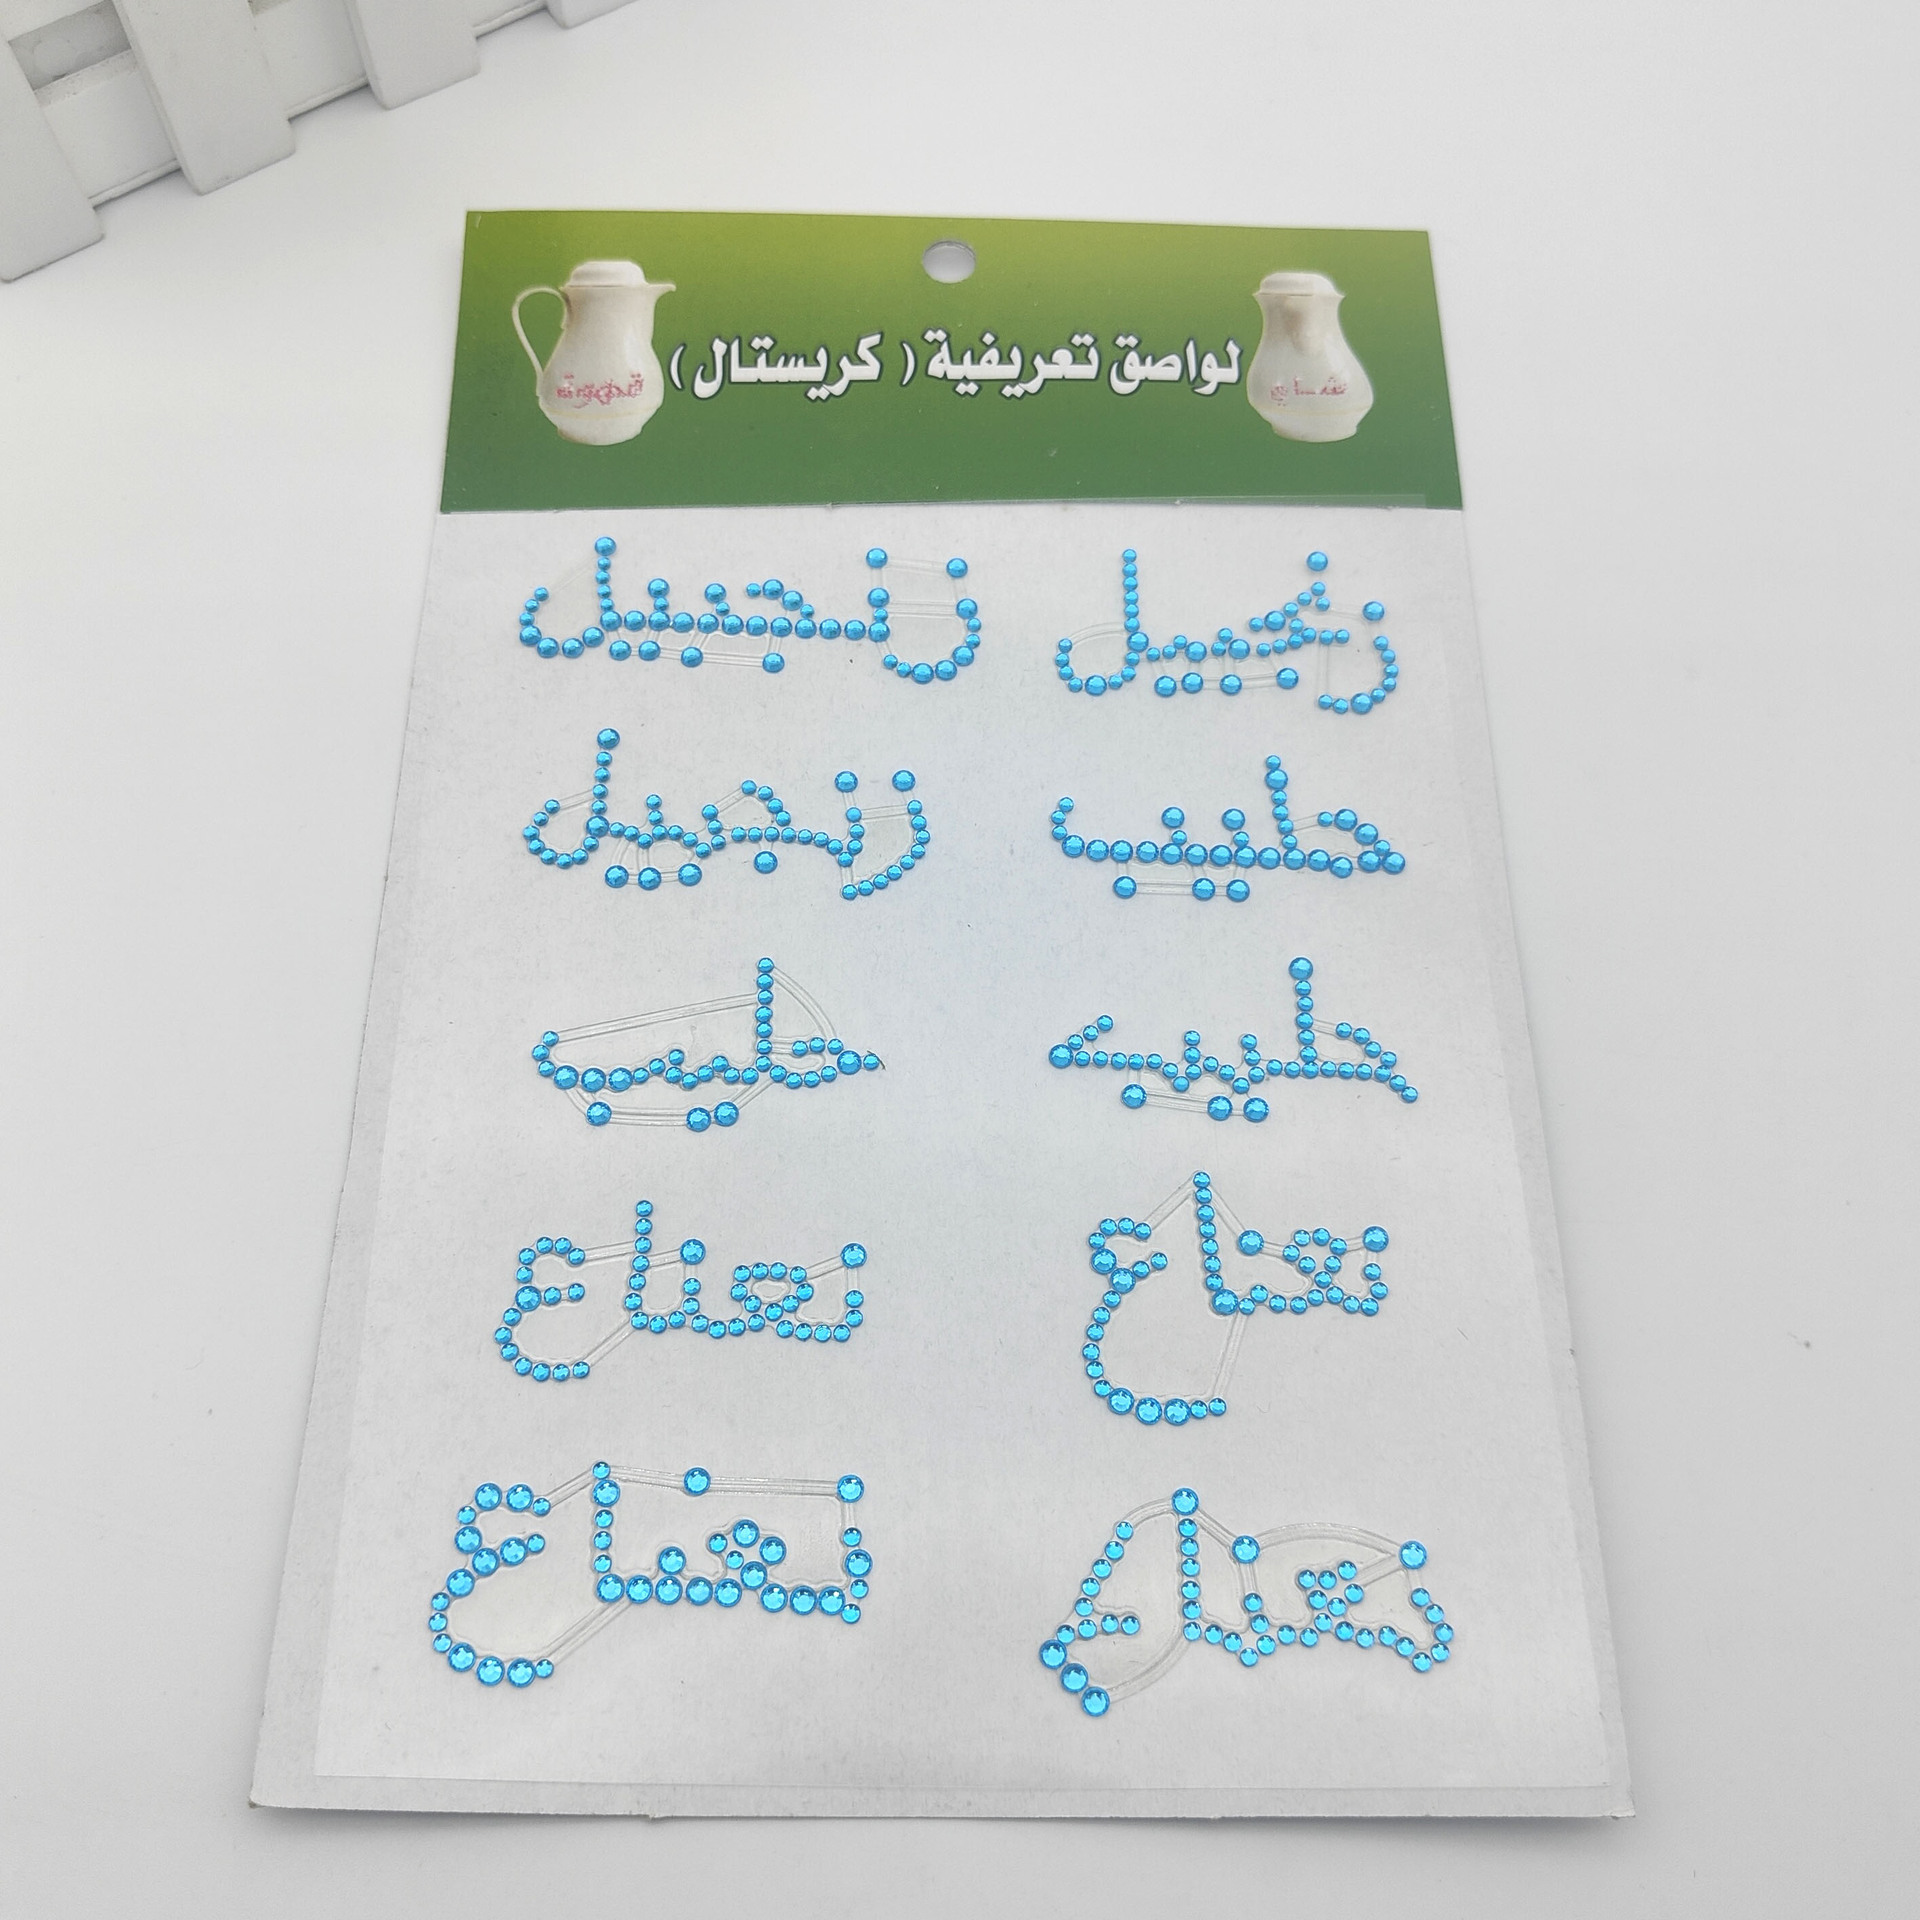 لواصق تعريفية ( كريستال )
شاي
قهوة
زنجبيل زنجبيل
حليب زنجبيل
حليب حليب
نعناع نعناع
نعناع نعناع